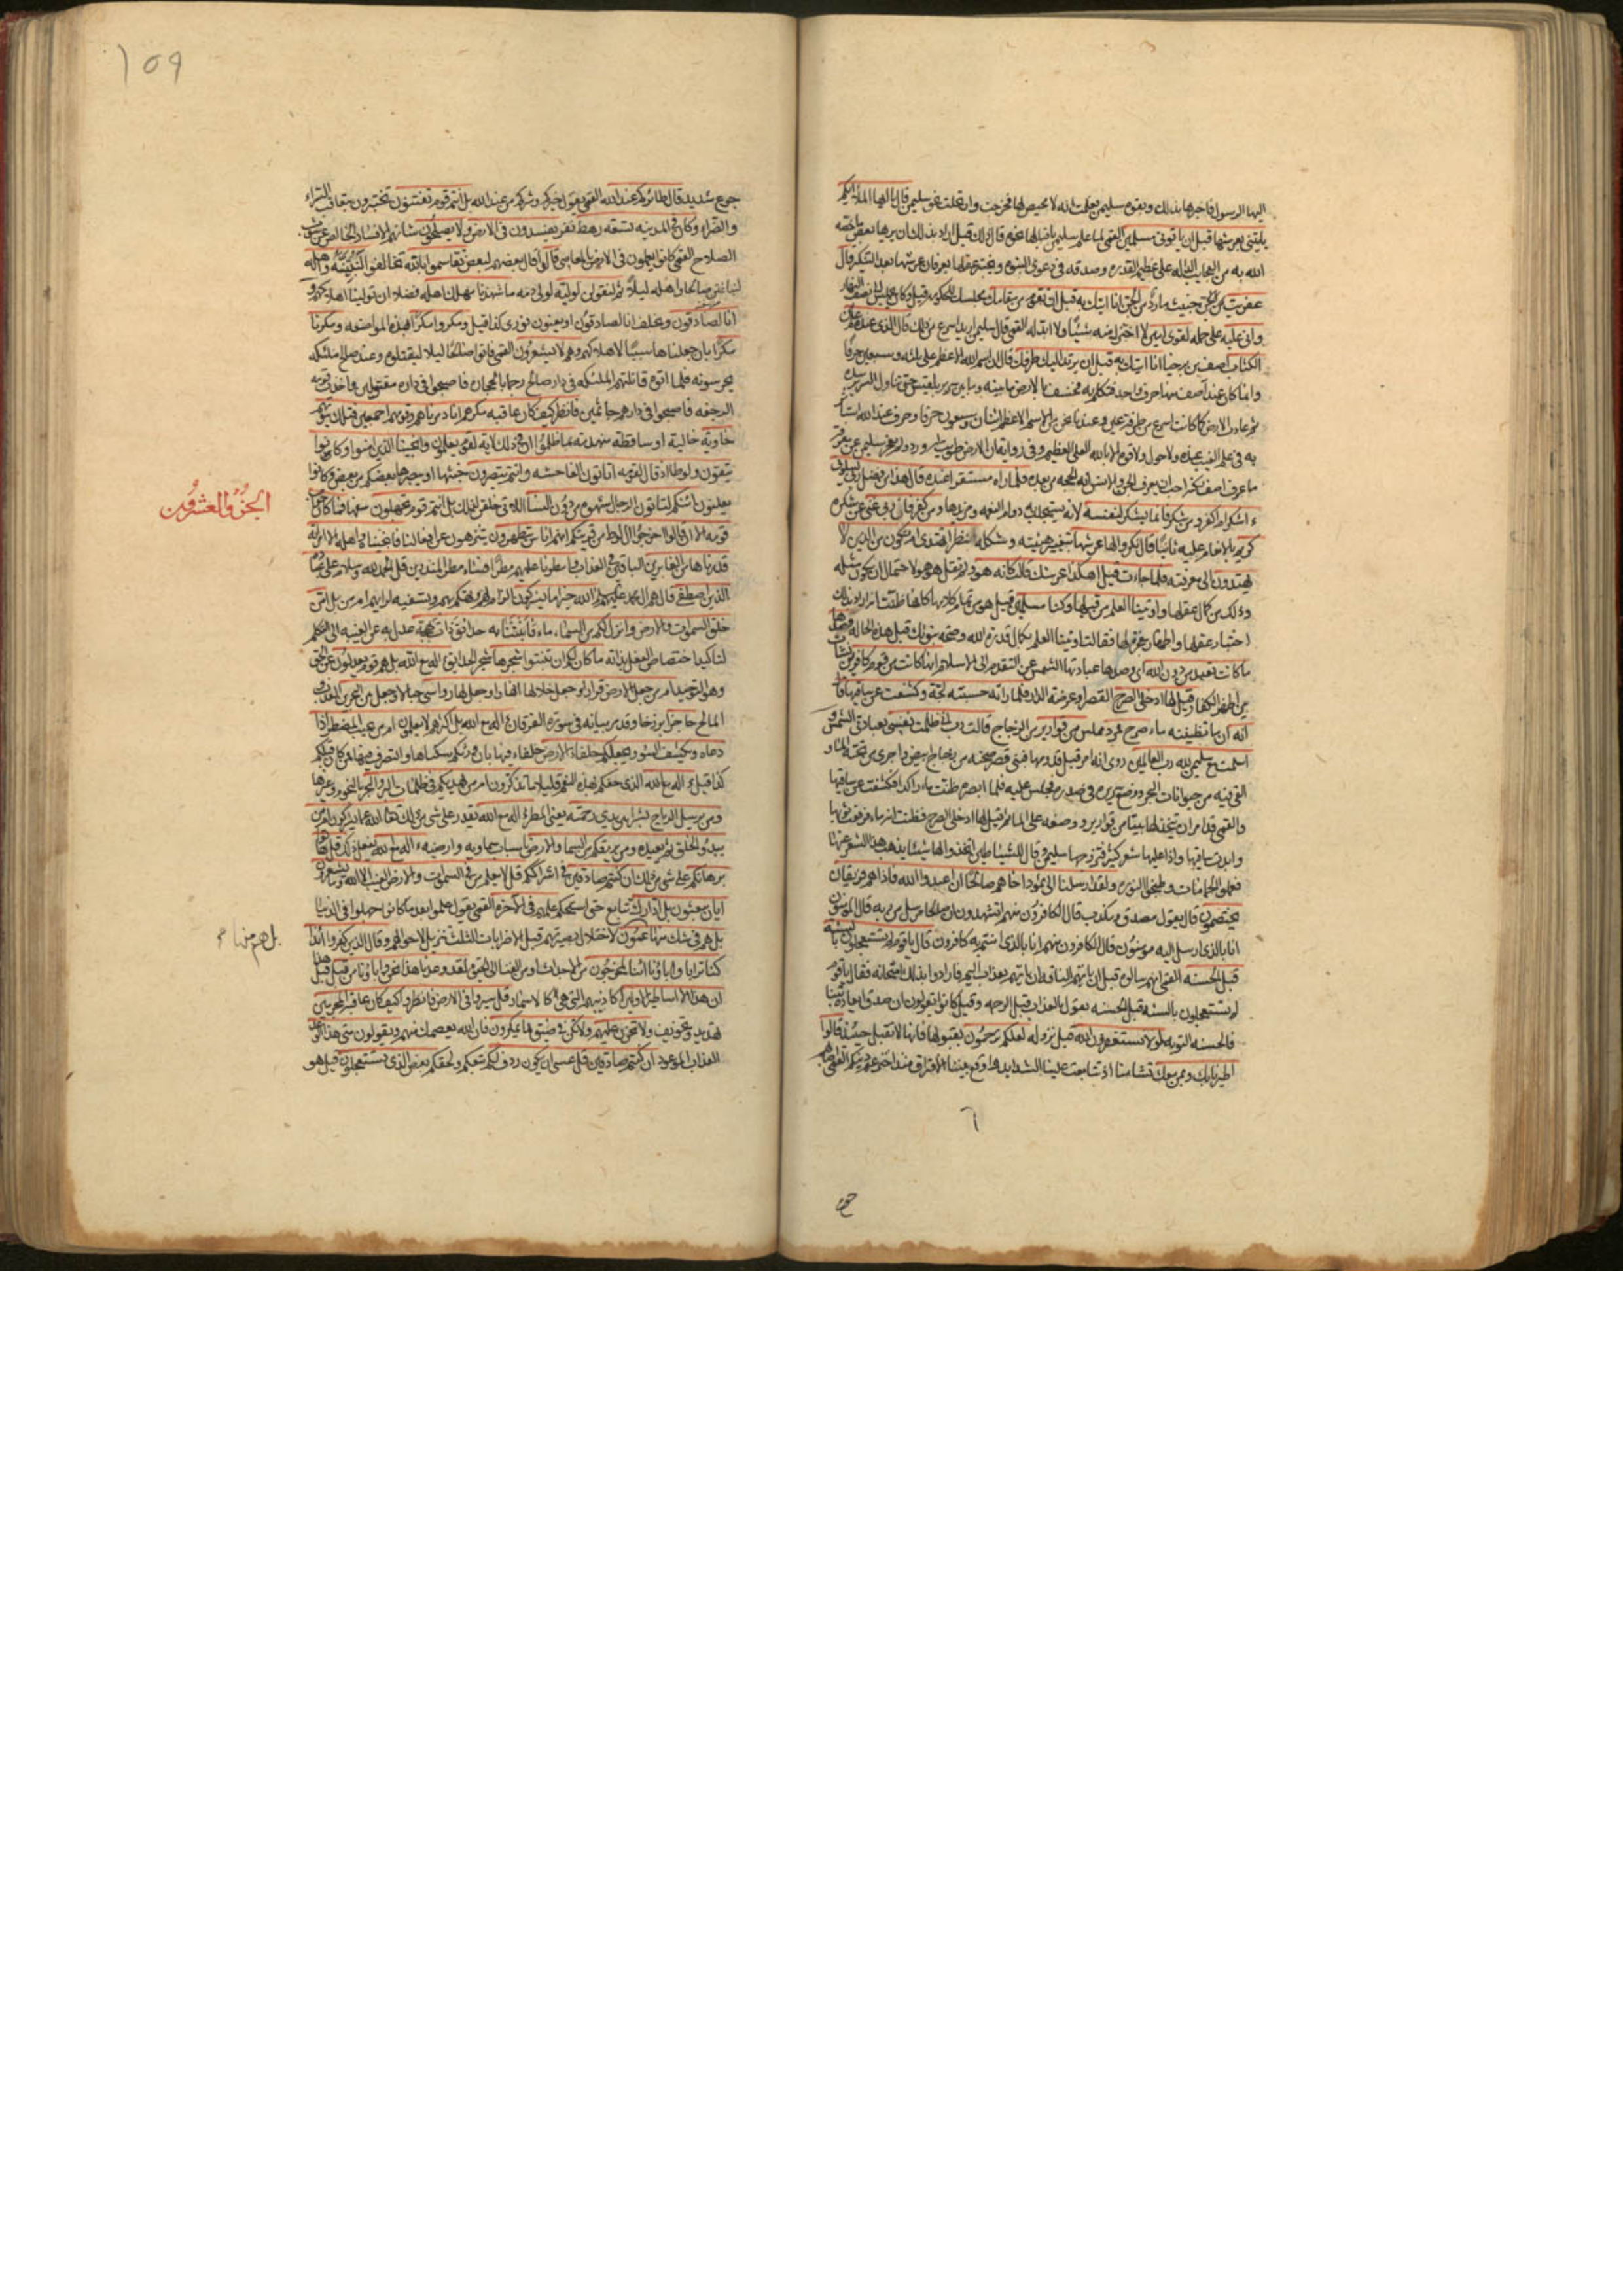 اليها الرسول فاخبرها بذلك وبقوة سليمن فعلمت انه لا محيص لها فخرجت وارتحلت نحو سليمن قال يا ايها الملا ايكم
ياتيني بعرشها قبل ان ياتوني مسلمين القمي لما علم سليمن باقبالها نحوه قال ذلك قيل اراد بذلك ان يريها بعض ما خصه
الله به من العجايب الدالة على عظيم القدرة وصدقه في دعوى النبوة ويختبر عقلها بعرفان عرشها بعد التنكير قال
عفريت من الجن خبيث مارد من الجن انا اتيك به قبل ان تقوم من مقامك مجلسك للحكومة قيل وكان يجلس الى نصف النهار
واني عليه على حمله لقوي امين لا اختزل منه شيئا ولا ابدله القمي قال سليمن اريد اسرع من ذلك قال الذي عنده علم من
الكتاب آصف بن برخيا انا اتيك به قبل ان يرتد اليك طرفك قال ان اسم الله الاعظم على ثلثة وسبعين حرفا
وانما كان عند آصف منها حرف واحد فتكلم به فخسف بالارض ما بينه وبين سرير بلقيس حتى تناول السرير بيده
ثم عادت الارض كما كانت اسرع من طرفة عين وعندنا نحن من الاسم الاعظم اثنان وسبعون حرفا وحرف عند الله استاثر
به في علم الغيب عنده ولا حول ولا قوة الا بالله العلي العظيم وفي رواية ان الارض طويت له وورد ولم يعجز سليمن عن معرفة
ما عرف آصف لكنه احب ان يعرف الجن والانس انه الحجة من بعده فلما راه مستقرا عنده قال هذا من فضل ربي ليبلوني
ءاشكر ام اكفر ومن شكر فانما يشكر لنفسه لانه يستجلب به دوام النعمة ومزيدها ومن كفر فان ربي غني عن شكره
كريم بالانعام عليه ثانيا قال نكروا لها عرشها بتغيير هيئته وشكله ننظر اتهتدي ام تكون من الذين لا
يهتدون الى معرفته فلما جاءت قيل اهكذا عرشك قالت كانه هو ولم تقل هو هو لاحتمال ان يكون مثله
وذلك من كمال عقلها واوتينا العلم من قبلها وكنا مسلمين قيل هو من تمام كلامها كانها ظنت انه اراد بذلك
اختبار عقلها واظهار معجزة لها فقالت اوتينا العلم بكمال قدرة الله وصحة نبوتك قبل هذه الحالة وصدها
ما كانت تعبد من دون الله اي وصدها عبادتها الشمس عن التقدم الى الاسلام انها كانت من قوم كافرين نشات
بين اظهر الكفار قيل لها ادخلي الصرح القصر او عرصة الدار فلما راته حسبته لجة وكشفت عن ساقيها قال
انه ان ما تظنينه ماء صرح ممرد مملس من قوارير من الزجاج قالت رب اني ظلمت نفسي بعبادتي الشمس و
اسلمت مع سليمن لله رب العالمين روي انه امر قبل قدومها فبنى قصر صحنه من زجاج ابيض واجرى من تحته الماء و
القى فيه من حيوانات البحر ووضع سريره في صدره فجلس عليه فلما ابصرته ظنت ماء راكدا فكشفت عن ساقيها
والقمي قد امر ان يتخذ لها بيتا من قوارير ووضعه على الماء ثم قيل لها ادخلي الصرح فظنت انه ماء فرفعت ثوبها
وابدت ساقيها واذا عليها شعر كثير فتزوجها سليمن وقال للشياطين اتخذوا لها شيئا يذهب هذا الشعر عنها
فعملوا الحمامات وطبخوا النورة ولقد ارسلنا الى ثمود اخاهم صالحا ان اعبدوا الله فاذا هم فريقان
يختصمون قال يقول مصدق ومكذب قال الكافرون منهم اتشهدون ان صالحا مرسل من ربه قال المؤمنون
انا بالذي ارسل اليه مؤمنون قال الكافرون منهم انا بالذي امنتم به كافرون قال يا قوم لم تستعجلون بالسيئة
قبل الحسنة القمي انهم سالوه قبل ان ياتيهم الناقة ان ياتيهم بعذاب اليم فارادوا بذلك امتحانه فقال يا قوم
لم تستعجلون بالسيئة قبل الحسنة يقول بالعذاب قبل الرحمة وقيل كانوا يقولون ان صدق ايعاده تبنا
فالحسنة التوبة لولا تستغفرون الله قبل نزوله لعلكم ترحمون بقبولها فانها لا تقبل حينئذ قالوا
اطيرنا بك وبمن معك تشامنا اذ تتابعت علينا الشدايد ووقع بيننا الافتراق منذ اخترعتم دينكم القمي اصابهم
٦
١٥٩
جوع شديد قال طائركم عند الله القمي يقول خيركم وشركم من عند الله بل انتم قوم تفتنون تختبرون بتعاقب السراء
والضراء وكان في المدينة تسعة رهط تسعة نفر يفسدون في الارض ولا يصلحون شانهم الافساد الخالص عن شوب
الصلاح القمي كانوا يعملون في الارض بالمعاصي قالوا قال بعضهم لبعض تقاسموا بالله تحالفوا لنبيتنه واهله
لنباغتن صالحا واهله ليلا ثم لنقولن لوليه لولي دمه ما شهدنا مهلك اهله فضلا ان تولينا اهلاكهم و
انا لصادقون ونحلف انا لصادقون او يعنون نوري كذا قيل ومكروا مكرا بهذه المواضعة ومكرنا
مكرا بان جعلناها سببا لاهلاكهم وهم لا يشعرون القمي فاتوا صالحا ليلا ليقتلوه وعند صالح ملئكة
يحرسونه فلما اتوه قاتلتهم الملئكة في دار صالح رجما بالحجارة فاصبحوا في داره مقتولين واخذت قومه
الرجفة فاصبحوا في دارهم جاثمين فانظر كيف كان عاقبة مكرهم انا دمرناهم وقومهم اجمعين فتلك بيوتهم
خاوية خالية او ساقطة منهدمة بما ظلموا ان في ذلك لاية لقوم يعلمون وانجينا الذين امنوا وكانوا
يتقون ولوطا اذ قال لقومه اتاتون الفاحشة وانتم تبصرون خبثها او يبصرها بعضكم من بعض وكانوا
يعلنون ائنكم لتاتون الرجال شهوة من دون النساء اللاتي خلقن لذلك بل انتم قوم تجهلون سفها فما كان جواب
قومه الا ان قالوا اخرجوا ال لوط من قريتكم انهم اناس يتطهرون يتنزهون عن افعالنا فانجيناه واهله الا امراته
قدرناها من الغابرين الباقين في العذاب وامطرنا عليهم مطرا فساء مطر المنذرين قل الحمد لله وسلام على عباده
الذين اصطفى قال هم ال محمد عليهم السلام ءالله خير اما يشركون الزام لهم وتهكم بهم وتسفيه لرايهم امن بل امن
خلق السموات والارض وانزل لكم من السماء ماء فانبتنا به حدائق ذات بهجة عدل به عن الغيبة الى التكلم
لتاكيد اختصاص الفعل بذاته ما كان لكم ان تنبتوا شجرها شجر الحدايق ءاله مع الله بل هم قوم يعدلون عن الحق
وهو التوحيد امن جعل الارض قرارا وجعل خلالها انهارا وجعل لها رواسي جبالا وجعل بين البحرين العذب و
المالح حاجزا برزخا وقد مر بيانه في سورة الفرقان ءاله مع الله بل اكثرهم لا يعلمون امن يجيب المضطر اذا
دعاه ويكشف السوء ويجعلكم خلفاء الارض خلفاء فيها بان ورثكم سكناها والتصرف فيها ممن كان قبلكم
كذا قيل ءاله مع الله الذي خصكم بهذه النعم قليلا ما تذكرون امن يهديكم في ظلمات البر والبحر بالنجوم وغيرها
ومن يرسل الرياح بشرا بين يدي رحمته يعني المطر ءاله مع الله يقدر على شيء من ذلك تعالى الله عما يشركون امن
يبدؤ الخلق ثم يعيده ومن يرزقكم من السماء والارض باسباب سماوية وارضية ءاله مع الله يفعل ذلك قل هاتوا
برهانكم على شيء من ذلك ان كنتم صادقين في اشراككم قل لا يعلم من في السموات والارض الغيب الا الله وما يشعرون
ايان يبعثون بل ادارك تتابع حتى استحكم علمهم في الاخرة القمي يقول علموا بعد ما كانوا جهلوا في الدنيا
بل هم في شك منها عمون لاختلال بصيرتهم قيل الاضرابات الثلث تنزيل لاحوالهم وقال الذين كفروا ءاذا
كنا ترابا واباؤنا ائنا لمخرجون من الاجداث او من الفناء الى الحيوة لقد وعدنا هذا نحن واباؤنا من قبل قبل هذا
ان هذا الا اساطير الاولين اكاذيبهم التي هي كالاسمار قل سيروا في الارض فانظروا كيف كان عاقبة المجرمين
تهديد وتخويف ولا تحزن عليهم ولا تكن في ضيق مما يمكرون فان الله يعصمك منهم ويقولون متى هذا الوعد
العذاب الموعود ان كنتم صادقين قل عسى ان يكون ردف لكم تبعكم ولحقكم بعض الذي تستعجلون قيل هو
الجزؤ العشرون
بل هم منها